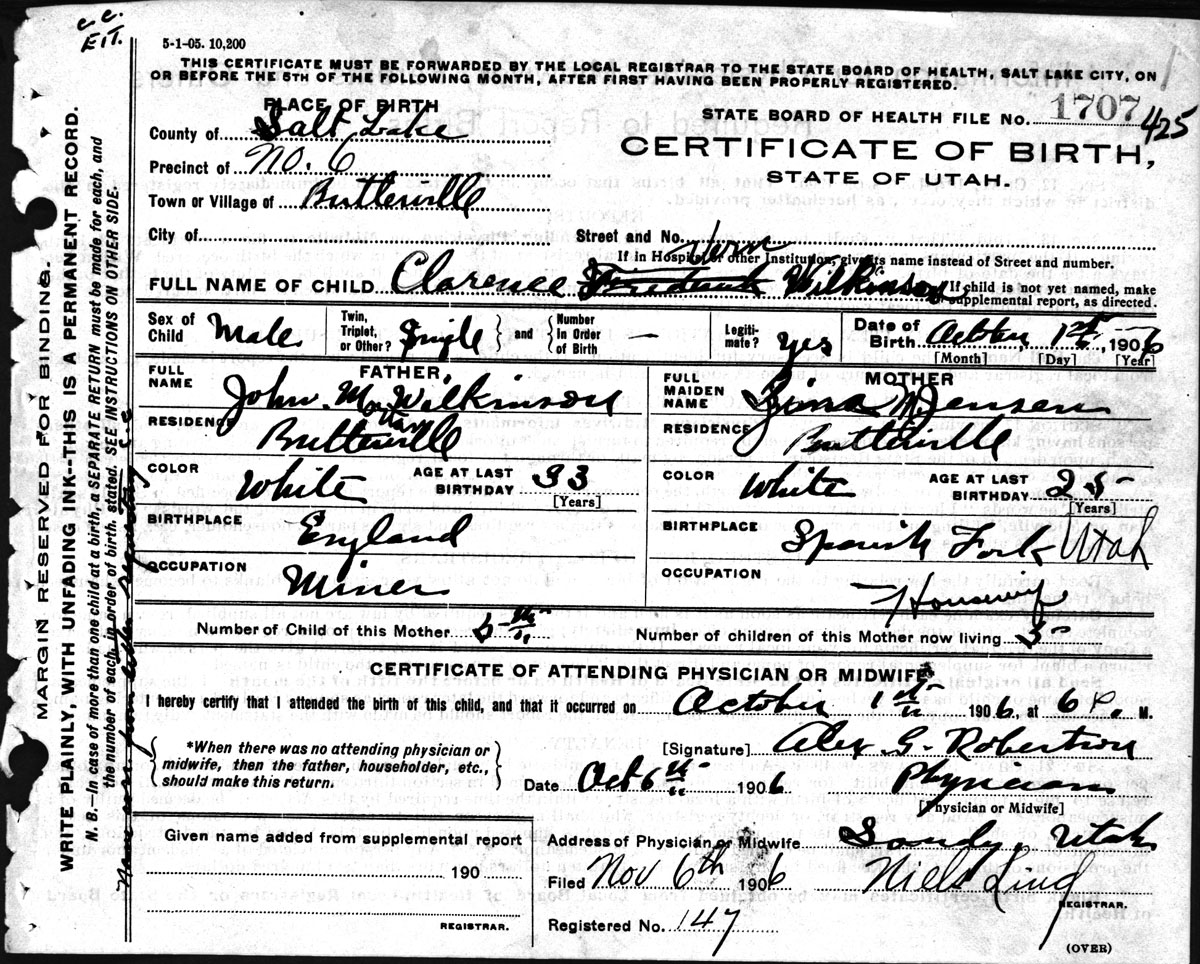 c.c.
E.T.
5-1-05. 10,200
THIS CERTIFICATE MUST BE FORWARDED BY THE LOCAL REGISTRAR TO THE STATE BOARD OF HEALTH, SALT LAKE CITY, ON
OR BEFORE THE 5TH OF THE FOLLOWING MONTH, AFTER FIRST HAVING BEEN PROPERLY REGISTERED.
PLACE OF BIRTH
County of Salt Lake
Precinct of No. 6
Town or Village of Butlerville
City of
STATE BOARD OF HEALTH FILE NO. 1707 425
CERTIFICATE OF BIRTH,
STATE OF UTAH.
Street and No.
If in Hospital or other Institution, give its name instead of Street and number.
Vern
FULL NAME OF CHILD Clarence Frederick Wilkinson
If child is not yet named, make supplemental report, as directed.
Sex of Child Male
Twin, Triplet, or Other? Single
and
Number In Order of Birth —
Legitimate? Yes
Date of Birth October 1st 1906
[Month] [Day] [Year]
FATHER
FULL NAME John M. Wilkinson
RESIDENCE Butlerville
COLOR White
AGE AT LAST BIRTHDAY 33
[Years]
BIRTHPLACE England
OCCUPATION Miner
MOTHER
FULL MAIDEN NAME Zina M. Jensen
RESIDENCE Butlerville
COLOR White
AGE AT LAST BIRTHDAY 25
[Years]
BIRTHPLACE Spanish Fork Utah
OCCUPATION Housewife
Number of Child of this Mother 5th
Number of children of this Mother now living 5
CERTIFICATE OF ATTENDING PHYSICIAN OR MIDWIFE
I hereby certify that I attended the birth of this child, and that it occurred on October 1st 1906, at 6 P. M.
*When there was no attending physician or
midwife, then the father, householder, etc.,
should make this return.
[Signature] Alex G. Robertson
Date Oct 6th 1906
Physician
[Physician or Midwife]
Given name added from supplemental report
190
REGISTRAR.
Address of Physician or Midwife Sandy, Utah
Filed Nov 6th 1906
Niels Lind
REGISTRAR.
Registered No. 147
(OVER)
MARGIN RESERVED FOR BINDING.
WRITE PLAINLY, WITH UNFADING INK--THIS IS A PERMANENT RECORD.
N. B.--In case of more than one child at a birth, a SEPARATE RETURN must be made for each, and
the number of each, in order of birth, stated. SEE INSTRUCTIONS ON OTHER SIDE.